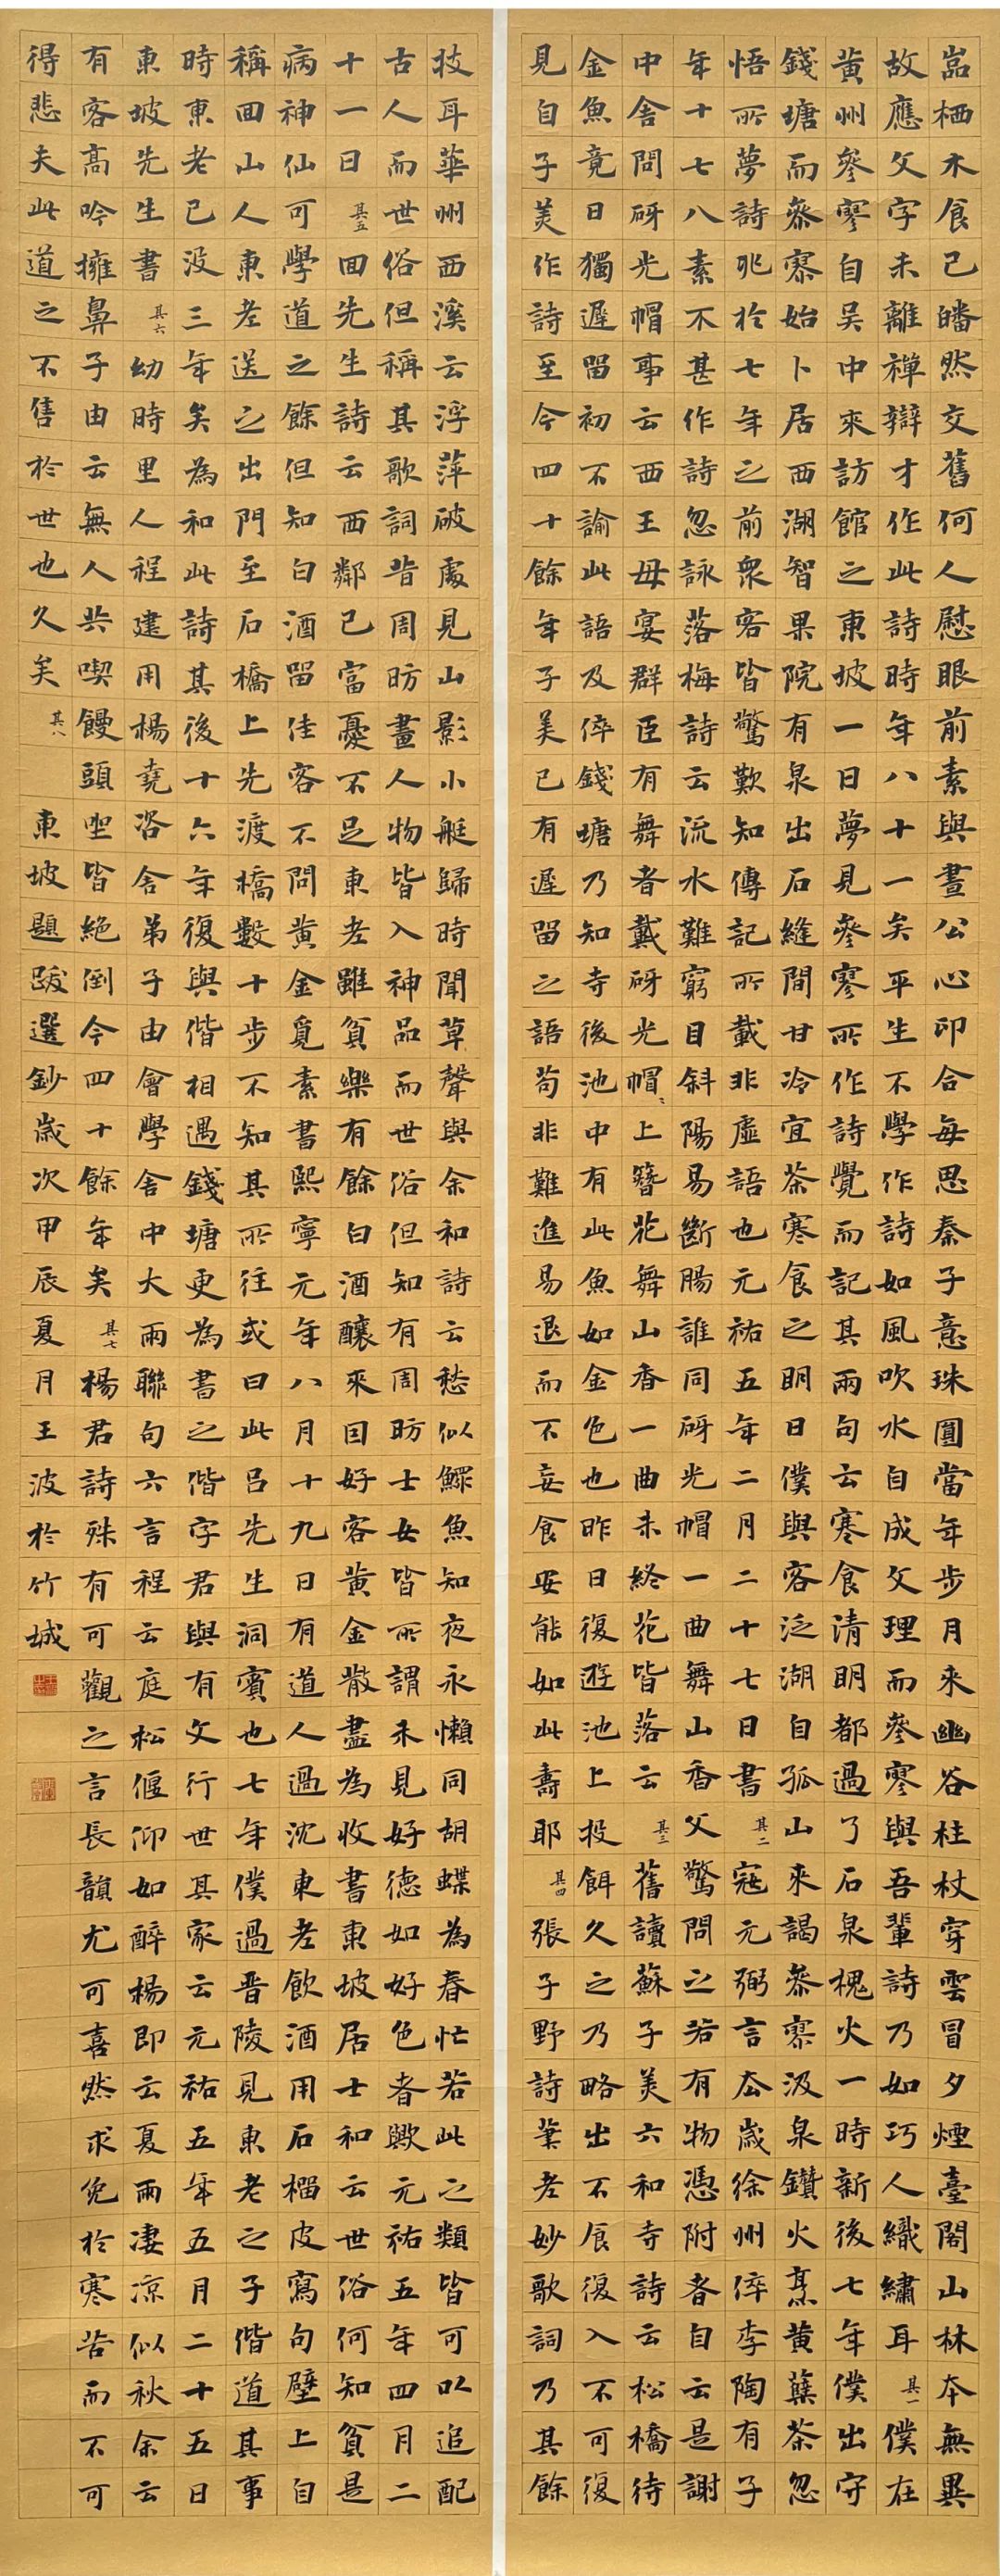 嵓栖木食已皤然交舊何人慰眼前素與晝公心印合每思秦子意珠圓當年步月來幽谷柱杖穿雲冒夕煙臺閣山林本無異
故應文字未離禪辯才作此詩時年八十一矣平生不學作詩如風吹水自成文理而參寥與吾輩詩乃如巧人織繡耳其一僕在
黄州參寥自吴中來訪館之東坡一日夢見參寥所作詩覺而記其兩句云寒食清明都過了石泉槐火一時新後七年僕出守
錢塘而參寥始卜居西湖智果院有泉出石縫間甘冷宜茶寒食之明日僕與客泛湖自孤山來謁參寥汲泉鑽火烹黄蘗茶忽
悟所夢詩兆於七年之前衆客皆驚歎知傳記所載非虛語也元祐五年二月二十七日書其二寇元弼言去歲徐州倅李陶有子
年十七八素不甚作詩忽詠落梅詩云流水難窮目斜陽易斷腸誰同砑光帽一曲舞山香父驚問之若有物憑附者自云是謝
中舍問砑光帽事云西王母宴群臣有舞者戴砑光帽、上簪花舞山香一曲未終花皆落云其三舊讀蘇子美六和寺詩云松橋待
金魚竟日獨遲留初不諭此語及倅錢塘乃知寺後池中有此魚如金色也昨日復遊池上投餌久之乃略出不食復入不可復
見自子美作詩至今四十餘年子美已有遲留之語苟非難進易退而不妄食安能如此壽耶其四張子野詩筆老妙歌詞乃其餘
技耳華州西溪云浮萍破處見山影小艇歸時聞草聲與余和詩云愁似鰥魚知夜永懶同胡蝶為春忙若此之類皆可以追配
古人而世俗但稱其歌詞昔周昉畫人物皆入神品而世俗但知有周昉士女皆所謂未見好德如好色者歟元祐五年四月二
十一日其五回先生詩云西鄰已富憂不足東老雖貧樂有餘白酒釀來因好客黄金散盡為收書東坡居士和云世俗何知貧是
病神仙可學道之餘但知白酒留佳客不問黄金覓素書熙寧元年八月十九日有道人過沈東老飲酒用石榴皮寫句壁上自
稱回山人東老送之出門至石橋上先渡橋數十步不知其所往或曰此吕先生洞賓也七年僕過晋陵見東老之子偕道其事
時東老已没三年矣為和此詩其後十六年復與偕相遇錢塘更為書之偕字君與有文行世其家云元祐五年五月二十五日
東坡先生書其六幼時里人程建用楊堯咨舍弟子由會學舍中大雨聯句六言程云庭松偃仰如醉楊即云夏雨凄凉似秋余云
有客高吟擁鼻子由云無人共喫饅頭坐皆絕倒今四十餘年矣其七楊君詩殊有可觀之言長韻尤可喜然求免於寒苦而不可
得悲夫此道之不售於世也久矣其八 東坡題跋選鈔歲次甲辰夏月王波於竹城